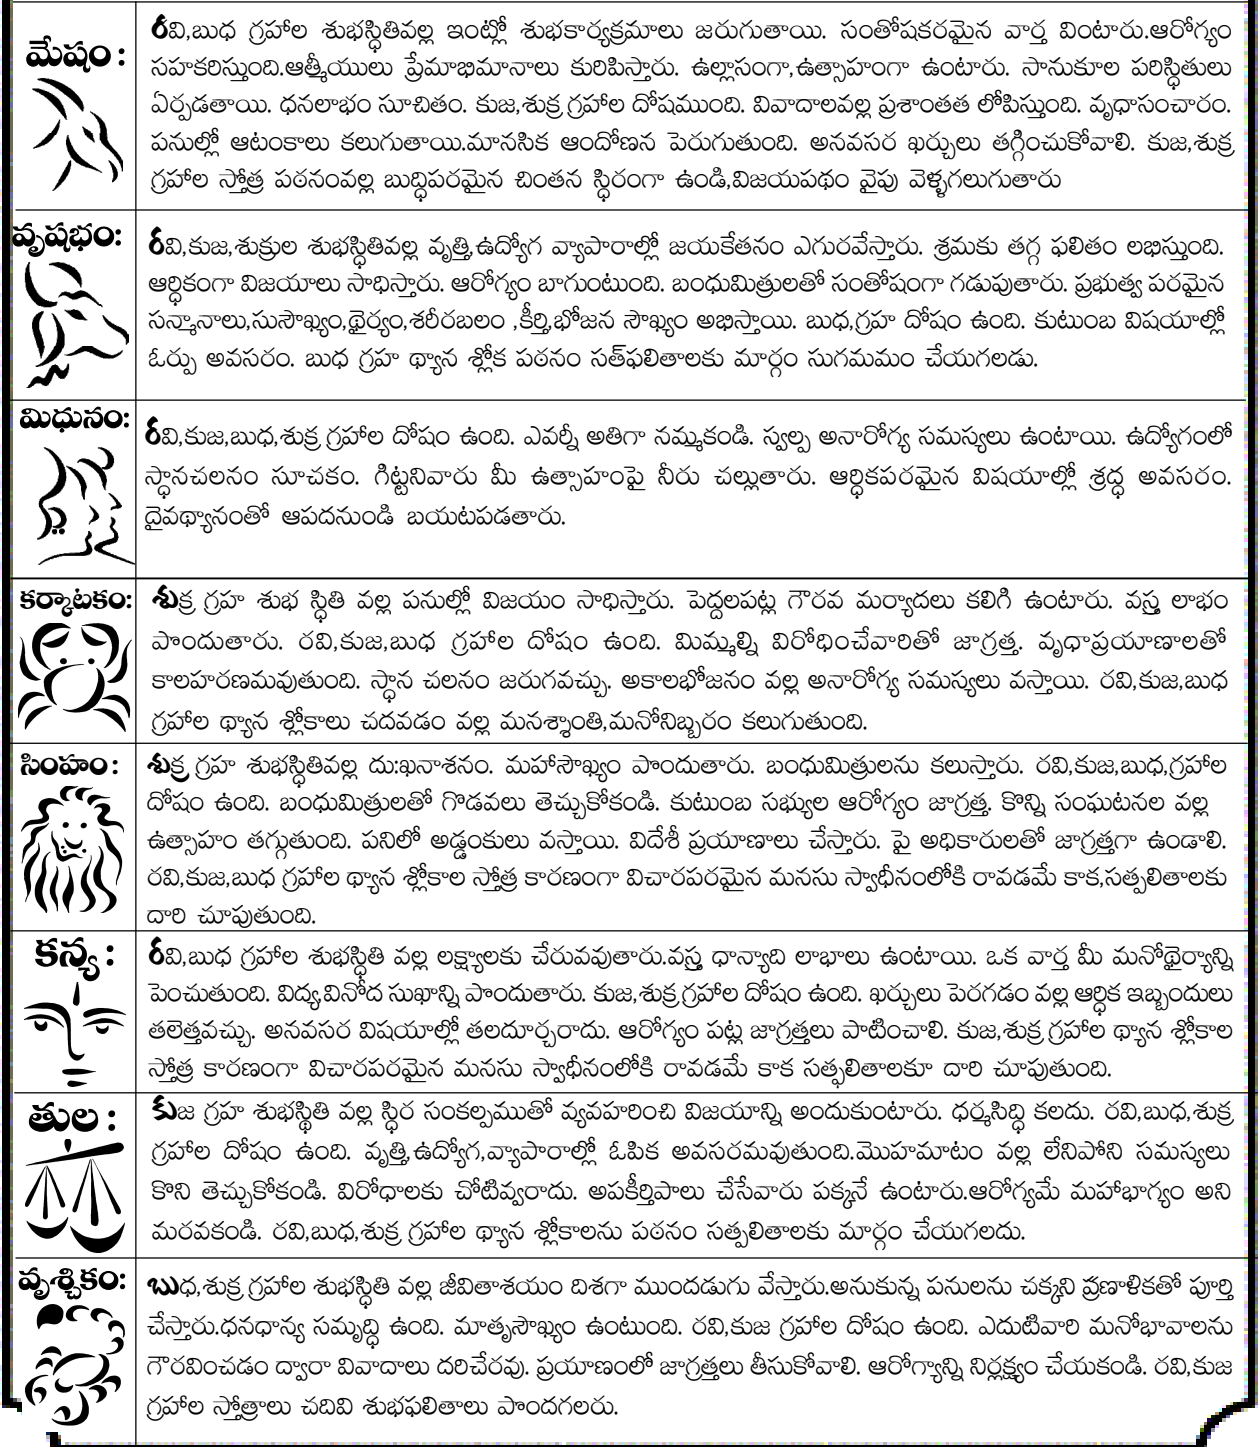 మేషం :
రవి,బుధ గ్రహాల శుభస్థితివల్ల ఇంట్లో శుభకార్యక్రమాలు జరుగుతాయి. సంతోషకరమైన వార్త వింటారు.ఆరోగ్యం
సహకరిస్తుంది.ఆత్మీయులు ప్రేమాభిమానాలు కురిపిస్తారు. ఉల్లాసంగా,ఉత్సాహంగా ఉంటారు. సానుకూల పరిస్థితులు
ఏర్పడతాయి. ధనలాభం సూచితం. కుజ,శుక్ర గ్రహాల దోషముంది. వివాదాలవల్ల ప్రశాంతత లోపిస్తుంది. వృధాసంచారం.
పనుల్లో ఆటంకాలు కలుగుతాయి.మానసిక ఆందోణన పెరుగుతుంది. అనవసర ఖర్చులు తగ్గించుకోవాలి. కుజ,శుక్ర
గ్రహాల స్తోత్ర పఠనంవల్ల బుద్ధిపరమైన చింతన స్థిరంగా ఉండి,విజయపథం వైపు వెళ్ళగలుగుతారు
వృషభం:
రవి,కుజ,శుక్రుల శుభస్థితివల్ల వృత్తి,ఉద్యోగ వ్యాపారాల్లో జయకేతనం ఎగురవేస్తారు. శ్రమకు తగ్గ ఫలితం లభిస్తుంది.
ఆర్ధికంగా విజయాలు సాధిస్తారు. ఆరోగ్యం బాగుంటుంది. బంధుమిత్రులతో సంతోషంగా గడుపుతారు. ప్రభుత్వ పరమైన
సన్మానాలు,సుసౌఖ్యం,థైర్యం,శరీరబలం ,కీర్తి,భోజన సౌఖ్యం అభిస్తాయి. బుధ,గ్రహ దోషం ఉంది. కుటుంబ విషయాల్లో
ఓర్పు అవసరం. బుధ గ్రహ థ్యాన శ్లోక పఠనం సత్‌ఫలితాలకు మార్గం సుగమమం చేయగలడు.
మిధునం:
రవి,కుజ,బుధ,శుక్ర గ్రహాల దోషం ఉంది. ఎవర్నీ అతిగా నమ్మకండి. స్వల్ప అనారోగ్య సమస్యలు ఉంటాయి. ఉద్యోగంలో
స్థానచలనం సూచకం. గిట్టనివారు మీ ఉత్సాహంపై నీరు చల్లుతారు. ఆర్ధికపరమైన విషయాల్లో శ్రద్ధ అవసరం.
దైవథ్యానంతో ఆపదనుండి బయటపడతారు.
కర్కాటకం:
శుక్ర గ్రహ శుభ స్థితి వల్ల పనుల్లో విజయం సాధిస్తారు. పెద్దలపట్ల గౌరవ మర్యాదలు కలిగి ఉంటారు. వస్త్ర లాభం
పొందుతారు. రవి,కుజ,బుధ గ్రహాల దోషం ఉంది. మిమ్మల్ని విరోధించేవారితో జాగ్రత్త. వృధాప్రయాణాలతో
కాలహరణమవుతుంది. స్థాన చలనం జరుగవచ్చు. అకాలభోజనం వల్ల అనారోగ్య సమస్యలు వస్తాయి. రవి,కుజ,బుధ
గ్రహాల థ్యాన శ్లోకాలు చదవడం వల్ల మనశ్శాంతి,మనోనిబ్బరం కలుగుతుంది.
సింహం:
శుక్ర గ్రహ శుభస్థితివల్ల దు:ఖనాశనం. మహాసౌఖ్యం పొందుతారు. బంధుమిత్రులను కలుస్తారు. రవి,కుజ,బుధ,గ్రహాల
దోషం ఉంది. బంధుమిత్రులతో గొడవలు తెచ్చుకోకండి. కుటుంబ సభ్యుల ఆరోగ్యం జాగ్రత్త. కొన్ని సంఘటనల వల్ల
ఉత్సాహం తగ్గుతుంది. పనిలో అడ్డంకులు వస్తాయి. విదేశీ ప్రయాణాలు చేస్తారు. పై అధికారులతో జాగ్రత్తగా ఉండాలి.
రవి,కుజ,బుధ గ్రహాల థ్యాన శ్లోకాల స్తోత్ర కారణంగా విచారపరమైన మనసు స్వాధీనంలోకి రావడమే కాక,సత్ఫలితాలకు
దారి చూపుతుంది.
కన్య :
రవి,బుధ గ్రహాల శుభస్థితి వల్ల లక్ష్యాలకు చేరువవుతారు.వస్త్ర ధాన్యాది లాభాలు ఉంటాయి. ఒక వార్త మీ మనోథైర్యాన్ని
పెంచుతుంది. విద్య,వినోద సుఖాన్ని పొందుతారు. కుజ,శుక్ర,గ్రహాల దోషం ఉంది. ఖర్చులు పెరగడం వల్ల ఆర్ధిక ఇబ్బందులు
తలెత్తవచ్చు. అనవసర విషయాల్లో తలదూర్చరాదు. ఆరోగ్యం పట్ల జాగ్రత్తలు పాటించాలి. కుజ,శుక్ర గ్రహాల థ్యాన శ్లోకాల
స్తోత్ర కారణంగా విచారపరమైన మనసు స్వాధీనంలోకి రావడమే కాక సత్ఫలితాలకూ దారి చూపుతుంది.
తుల :
కుజ గ్రహ శుభస్థితి వల్ల స్థిర సంకల్పముతో వ్యవహరించి విజయాన్ని అందుకుంటారు. ధర్మసిద్ధి కలదు. రవి,బుధ,శుక్ర
గ్రహాల దోషం ఉంది. వృత్తి,ఉద్యోగ,వ్యాపారాల్లో ఓపిక అవసరమవుతుంది.మొహమాటం వల్ల లేనిపోని సమస్యలు
కొని తెచ్చుకోకండి. విరోధాలకు చోటివ్వరాదు. అపకీర్తిపాలు చేసేవారు పక్కనే ఉంటారు.ఆరోగ్యమే మహాభాగ్యం అని
మరవకండి. రవి,బుధ,శుక్ర గ్రహాల థ్యాన శ్లోకాలను పఠనం సత్ఫలితాలకు మార్గం చేయగలదు.
వృశ్చికం:
బుధ,శుక్ర గ్రహాల శుభస్థితి వల్ల జీవితాశయం దిశగా ముందడుగు వేస్తారు.అనుకున్న పనులను చక్కని ప్రణాళికతో పూర్తి
చేస్తారు.ధనధాన్య సమృద్ధి ఉంది. మాతృసౌఖ్యం ఉంటుంది. రవి,కుజ గ్రహాల దోషం ఉంది. ఎదుటివారి మనోభావాలను
గౌరవించడం ద్వారా వివాదాలు దరిచేరవు. ప్రయాణంలో జాగ్రత్తలు తీసుకోవాలి. ఆరోగ్యాన్ని నిర్లక్ష్యం చేయకండి. రవి,కుజ
గ్రహాల స్తోత్రాలు చదివి శుభఫలితాలు పొందగలరు.